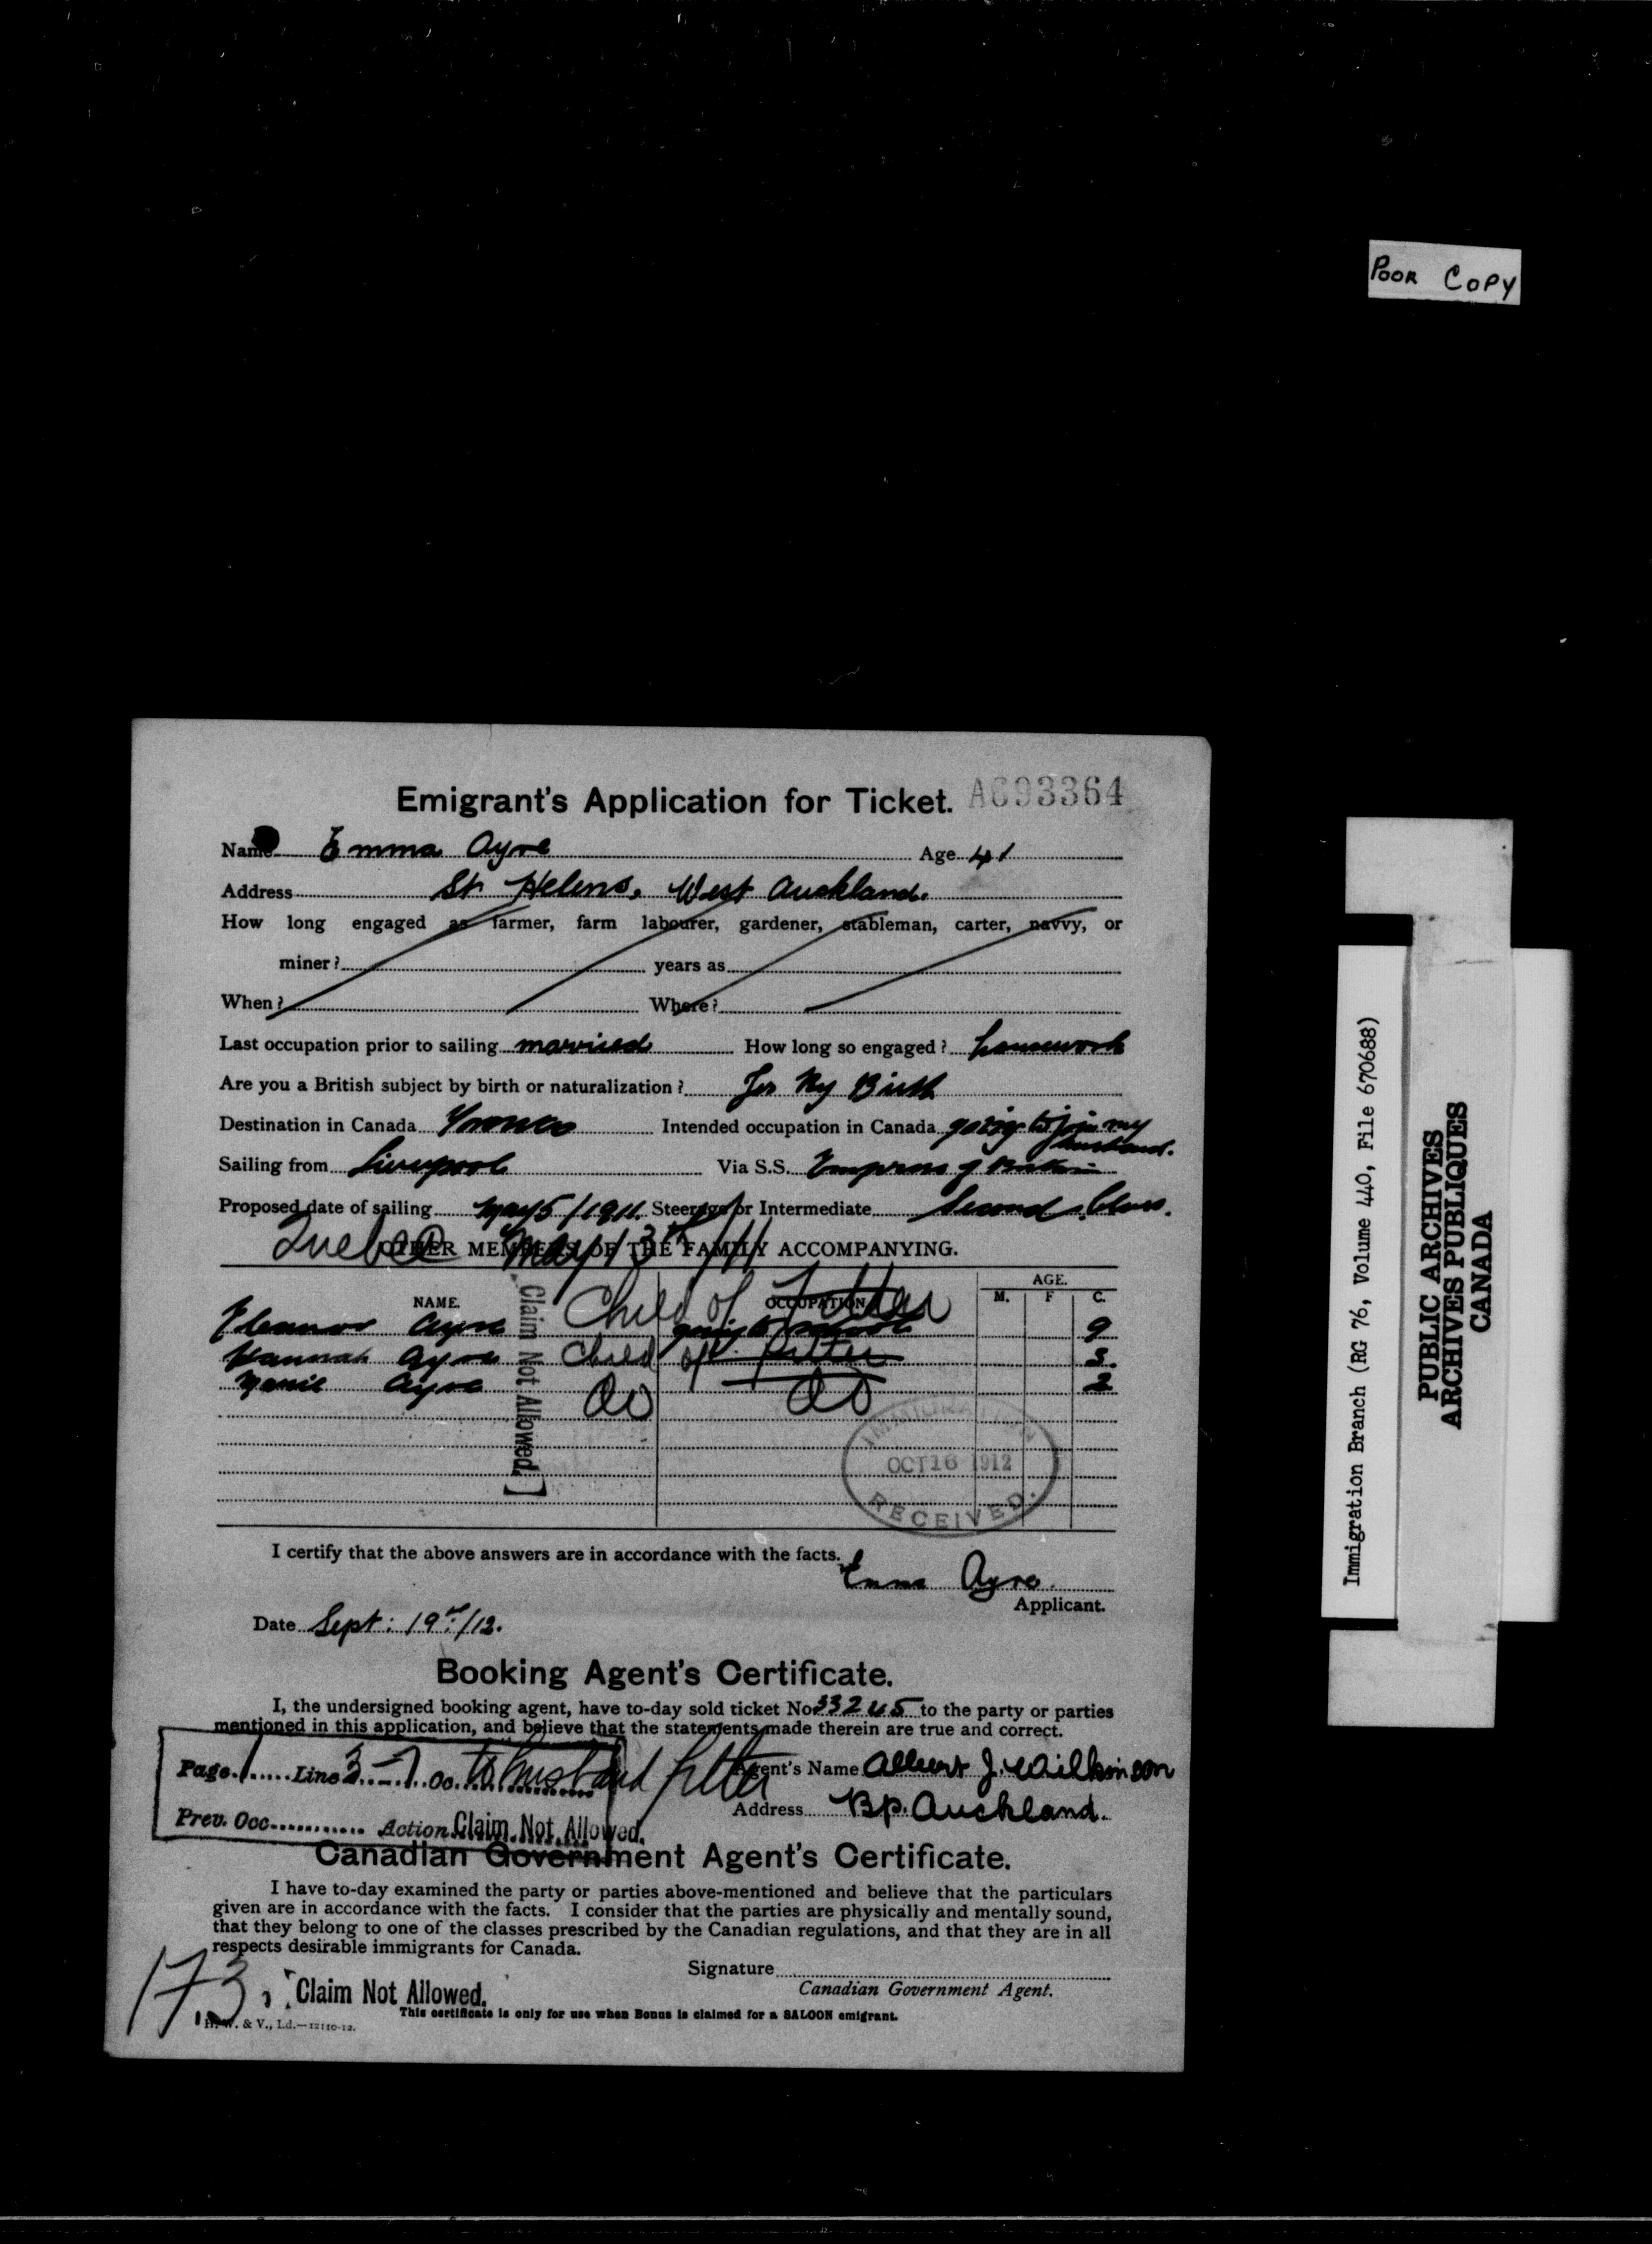 POOR COPY
Emigrant's Application for Ticket. A693364
Name Emma Ayre Age 41
Address St Helens, West Auckland.
How long engaged as farmer, farm labourer, gardener, stableman, carter, navvy, or
miner? years as
When? Where?
Last occupation prior to sailing married How long so engaged? housework
Are you a British subject by birth or naturalization? By Birth
Destination in Canada Intended occupation in Canada going to join my
husband.
Sailing from Liverpool Via S.S. Empress of
Proposed date of sailing May 5/1911 Steerage or Intermediate Second Class.
Quebec May 13th/11
OTHER MEMBERS OF THE FAMILY ACCOMPANYING.
AGE.
NAME. OCCUPATION. M. F C.
Child of Fitter
Eleanor Ayre going to school 9
Hannah Ayre Child of Fitter 3.
Ayre do do 2
Claim Not Allowed.
IMMIGRATION
OCT 16 1912
RECEIVED.
I certify that the above answers are in accordance with the facts.
Emma Ayre.
Applicant.
Date Sept: 19th/12.
Booking Agent's Certificate.
I, the undersigned booking agent, have to-day sold ticket No 33245 to the party or parties
mentioned in this application, and believe that the statements made therein are true and correct.
Page 1 Line 3-7 Oc. to husband fitter Agent's Name Albert J. Wilkinson
Address Bp. Auckland.
Prev. Occ. Action Claim Not Allowed.
Canadian Government Agent's Certificate.
I have to-day examined the party or parties above-mentioned and believe that the particulars
given are in accordance with the facts. I consider that the parties are physically and mentally sound,
that they belong to one of the classes prescribed by the Canadian regulations, and that they are in all
respects desirable immigrants for Canada.
Signature
Canadian Government Agent.
173 Claim Not Allowed.
This certificate is only for use when Bonus is claimed for a SALOON emigrant.
H. W. & V., Ld.—12110-12.
Immigration Branch (RG 76, Volume 440, File 670688)
PUBLIC ARCHIVES
ARCHIVES PUBLIQUES
CANADA